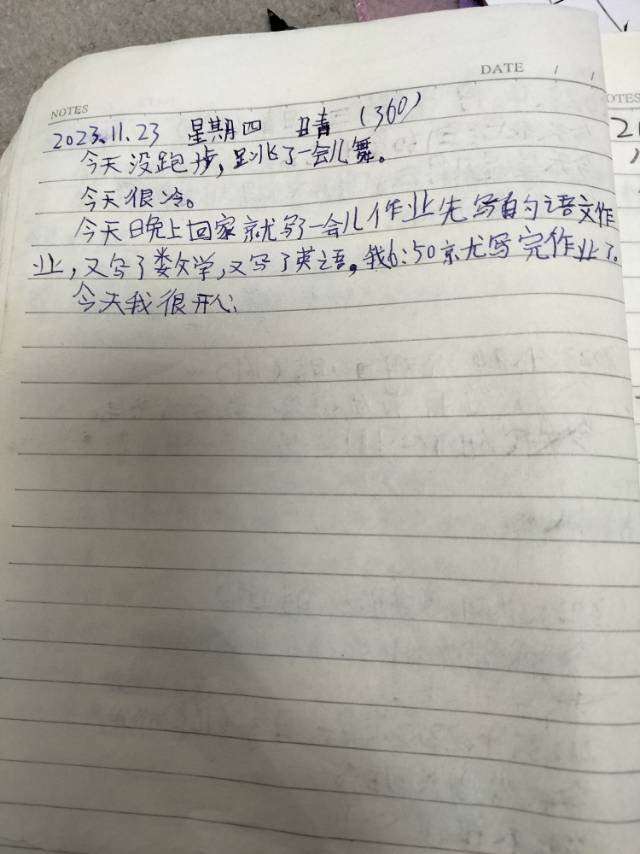 DATE / /
NOTES
2023.11.23 星期四 晴 (360)
今天没跑步,跳了一会儿舞。
今天很冷。
今天晚上回家就写了一会儿作业先写的语文作
业,又写了数学,又写了英语。我6:50就写完作业了。
今天我很开心
OTES
2